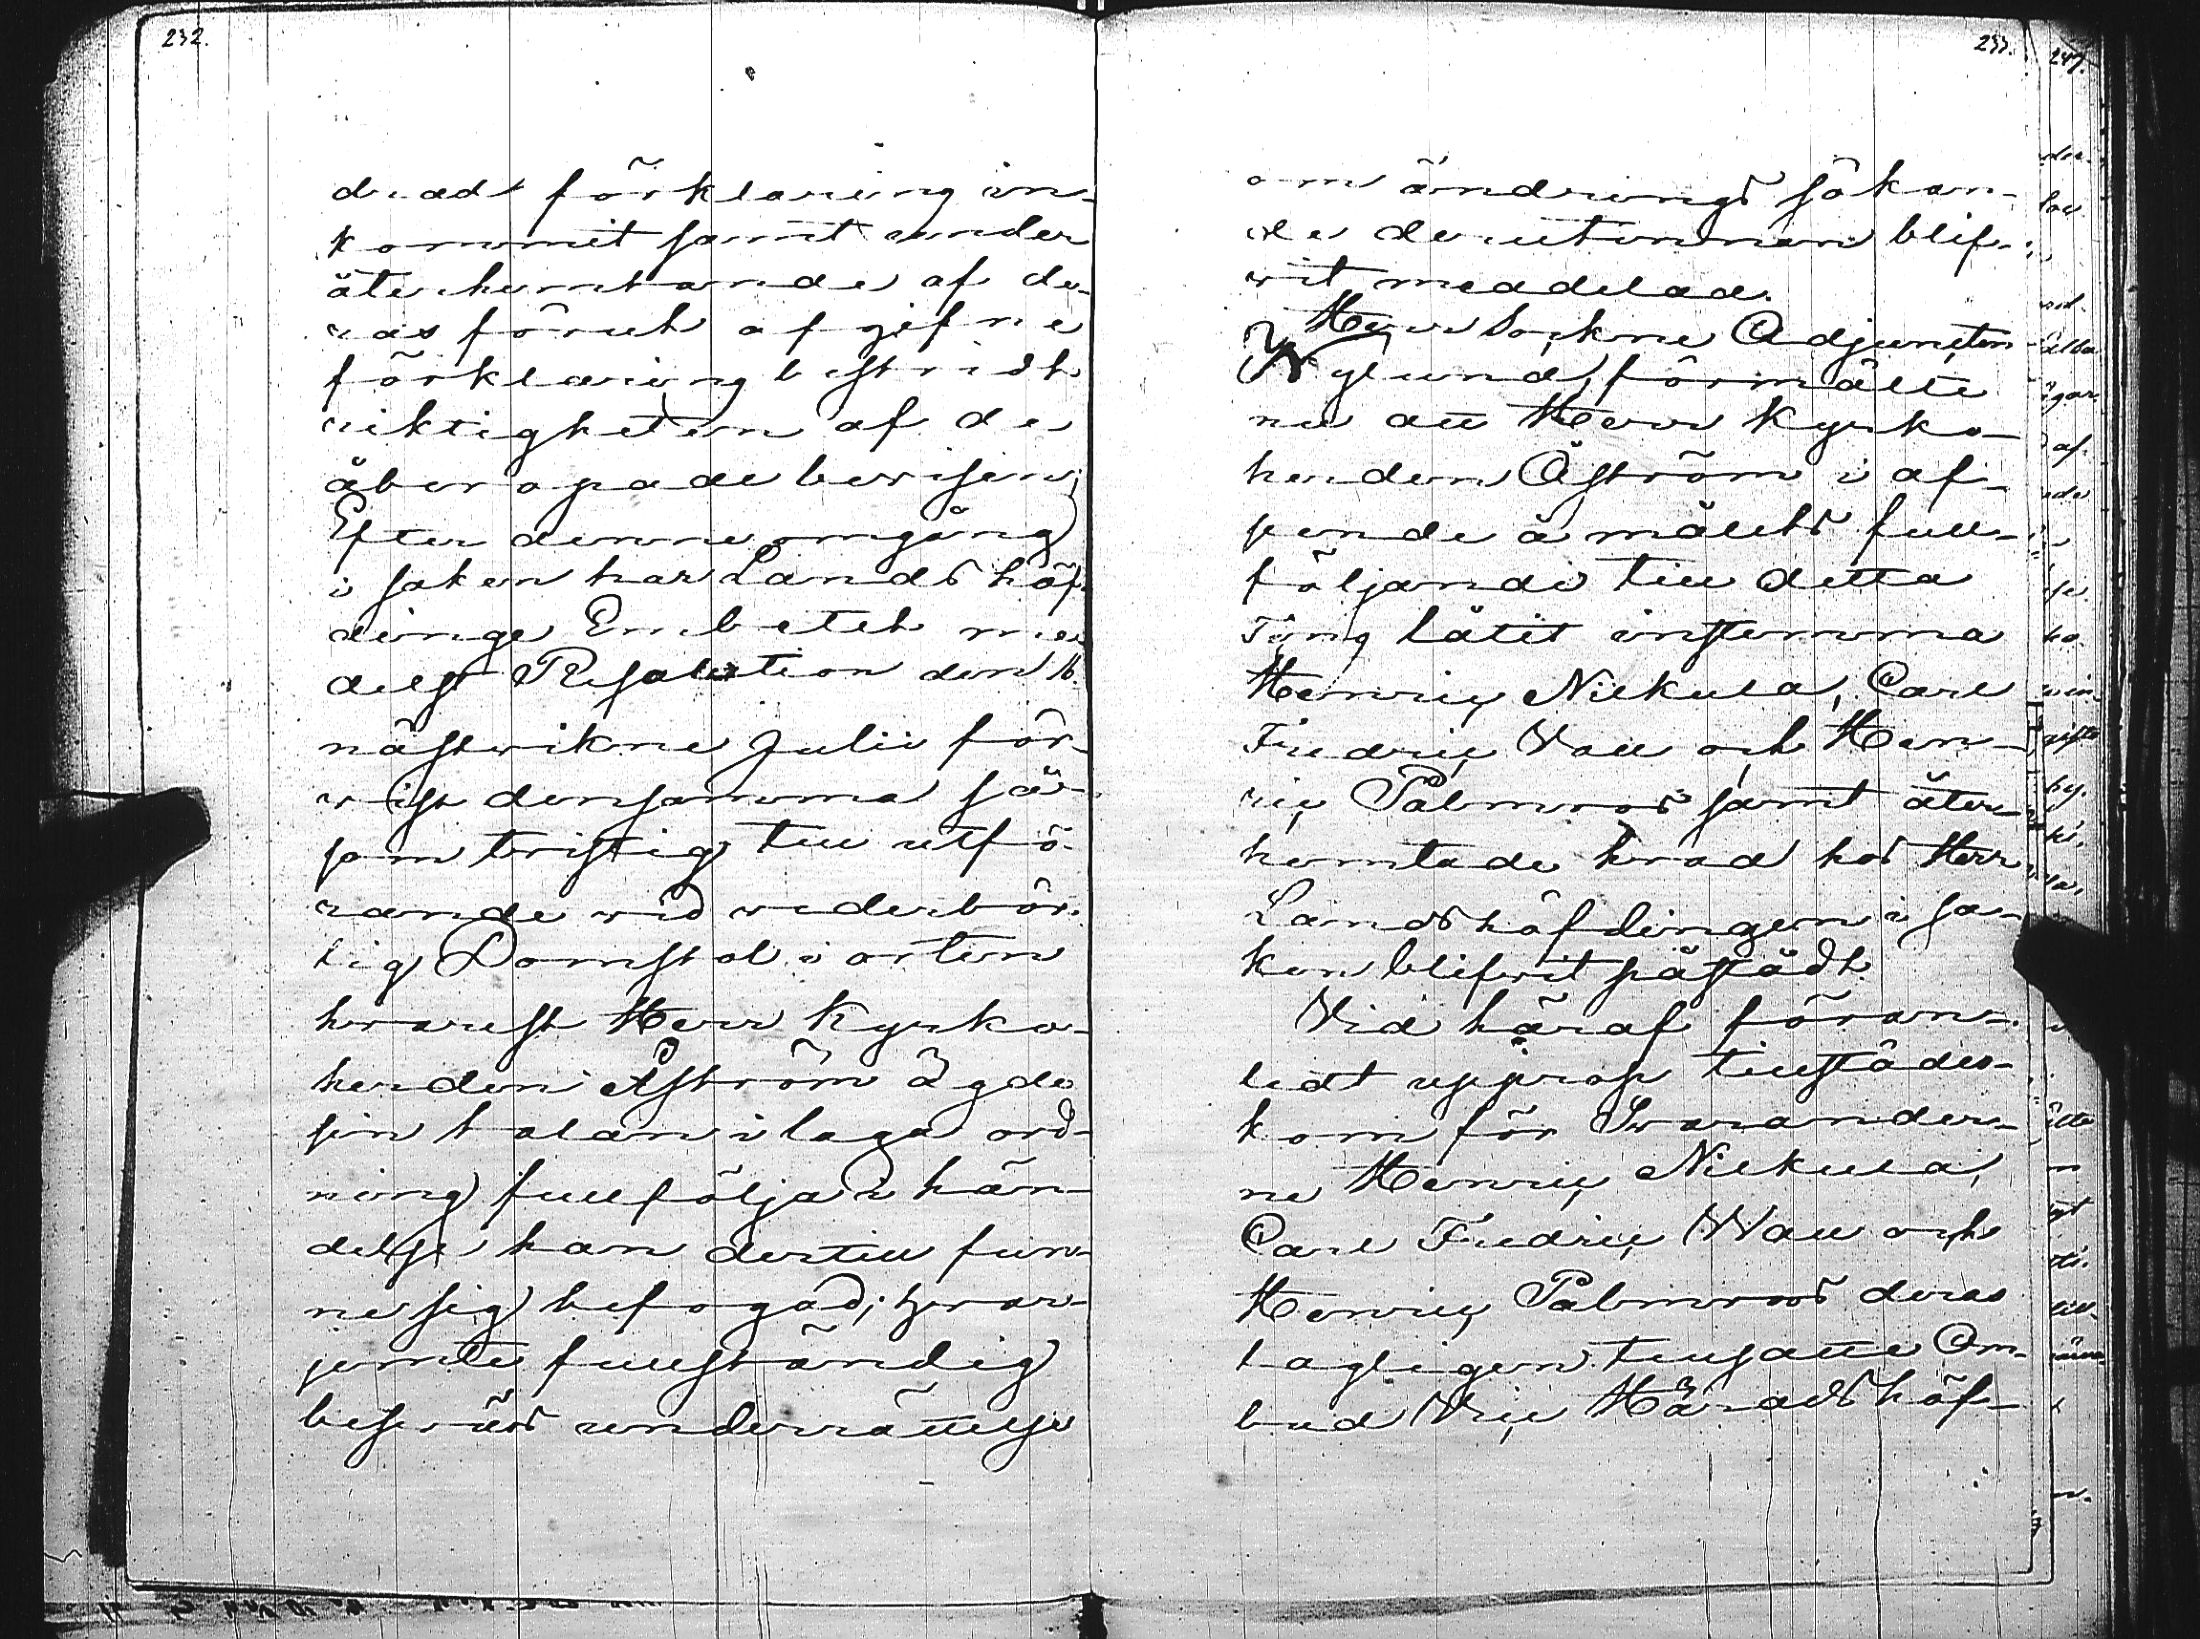 232.
drad förklaring in-
kommit samt under
återhemtande af de-
ras förut afgifne
förklaring bestridt
riktigheten af de
åberopade bevisen;
Efter denne omgång
i saken har Landshöf-
dinge Embetet me-
delst Resolution den 16.
nästvikne Julii för-
vist densamma så-
som tvistig till utfö-
rande vid vederbör-
lig Domstol i orten
hvarest Herr Kyrko-
herden Åström ägde
sin talan i laga ord-
ning fullfölja i hän-
delse han dertill fun-
ne sig befogad; hvar-
jemte fullständig
besvärs underrättelse
233.
om ändrings sökan-
de derutinnan blif-
vit meddelad.
Herr Sockne Adjuncten
Nylund, förmälte
nu att Herr Kyrko-
herden Åström i af-
seende å målets full-
följande till detta
Ting låtit instemma
Henric Nilkula, Carl
Fredric Wall och Hen-
ric Palmroos samt åter-
hemtade hvad hos Herr
Landshöfdingen i sa-
ken blifvit påstådt.
Vid häraf föran-
ledt upprop tillstädes-
kom för Svarander-
ne Henric Nilkula,
Carl Fredric Wall och
Henric Palmroos deras
lagligen tillsatte Om-
bud Vice Häradshöf-
247.